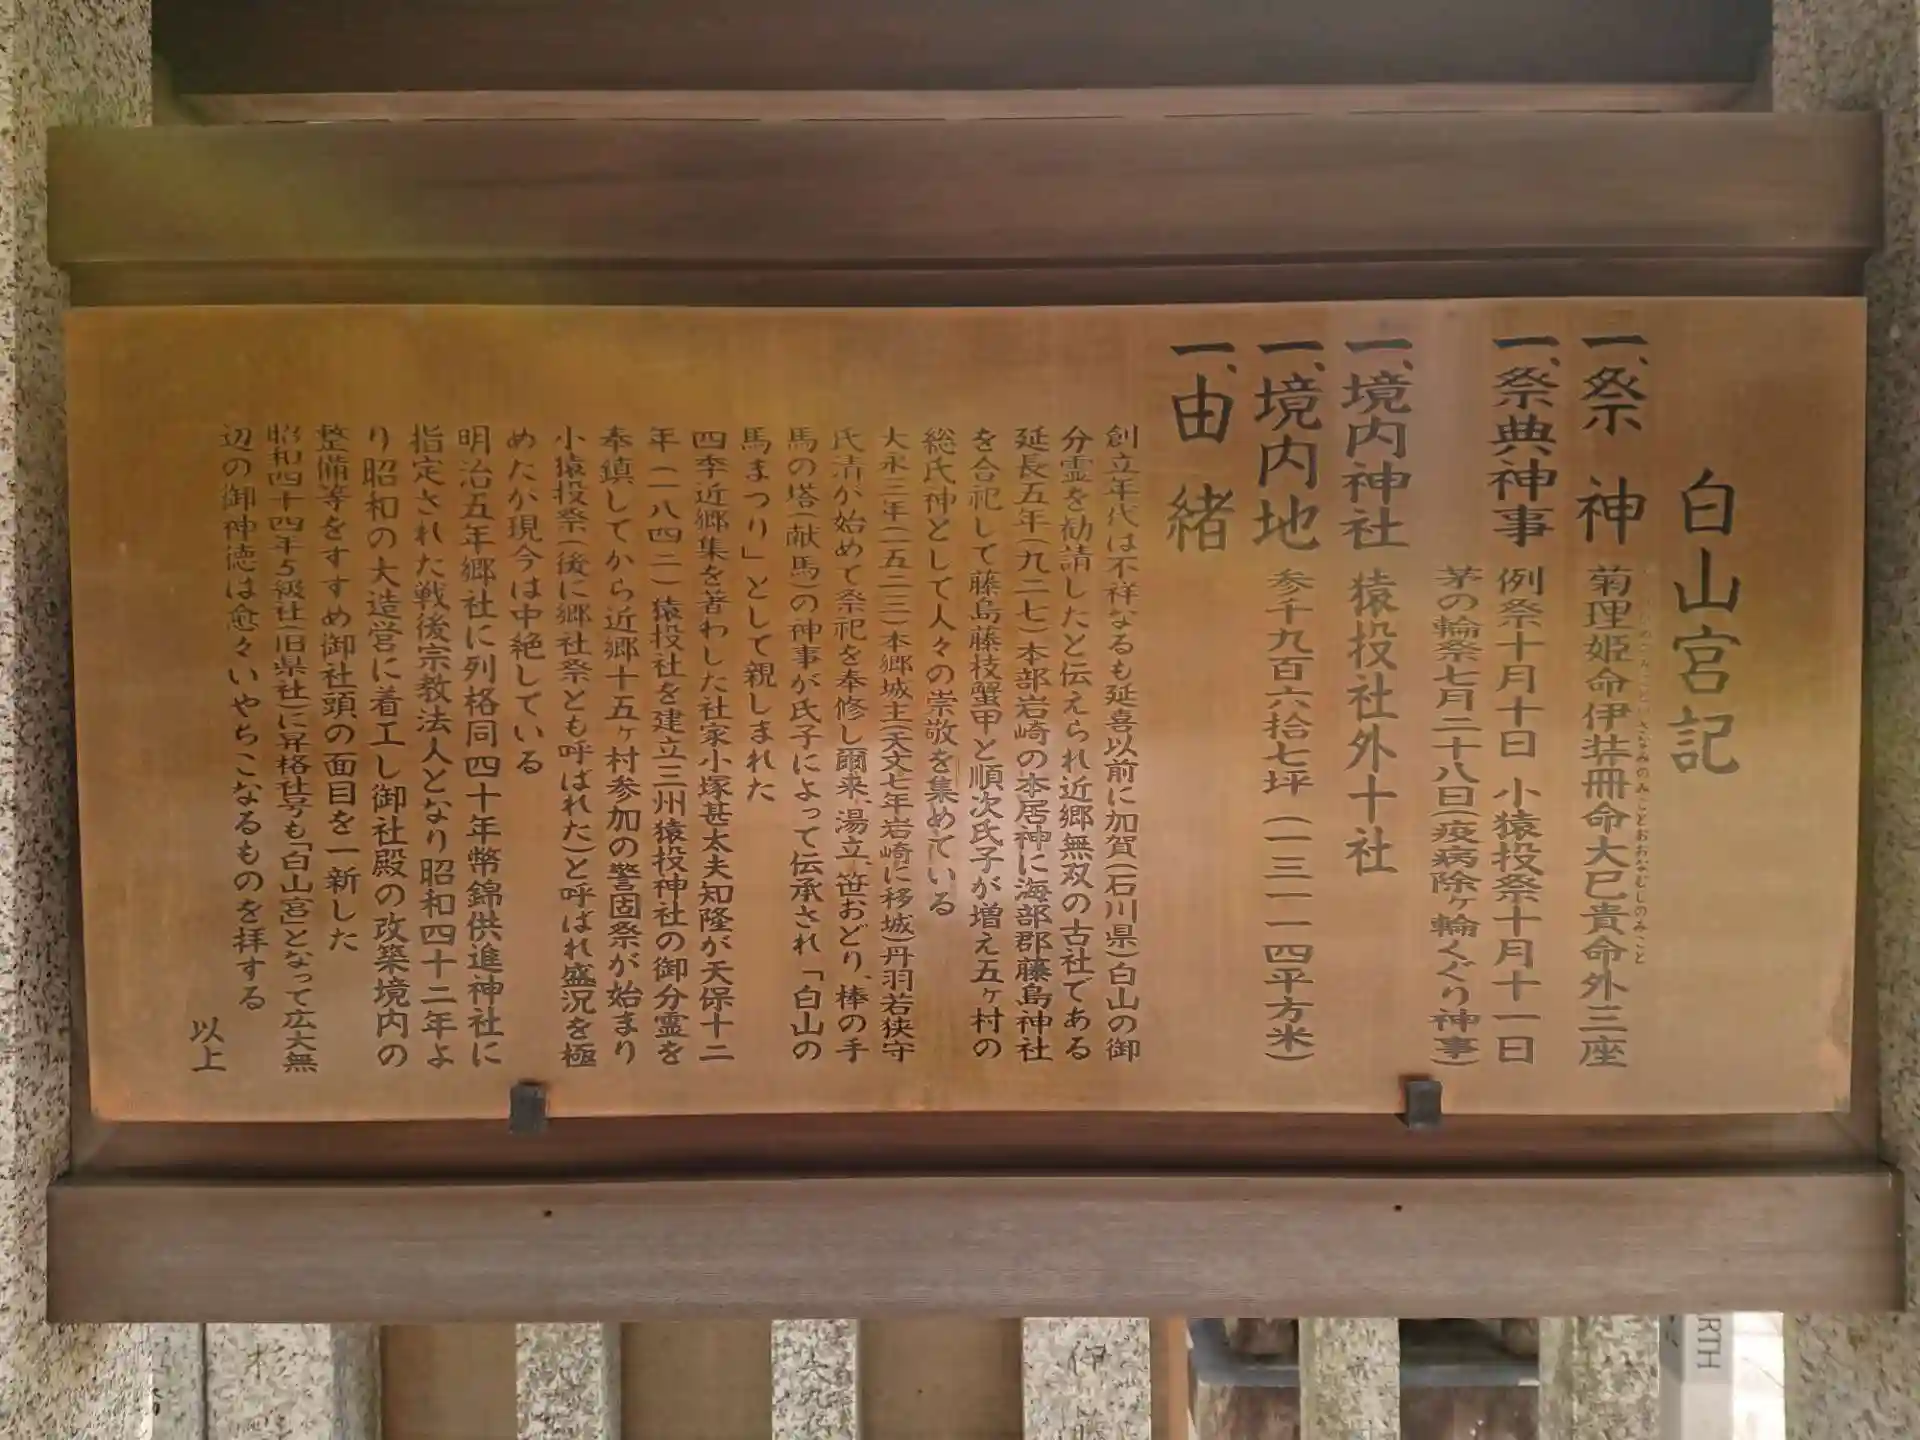 白山宮記
一、祭神 菊理姫命伊弉冊命大已貴命外三座
一、祭典神事 例祭十月十日 小猿投祭十月十一日
茅の輪祭七月二十八日(疫病除ヶ輪くぐり神事)
一、境内神社 猿投社外十社
一、境内地 参千九百六拾七坪(一三一一四平方米)
一、由緒
創立年代は不祥なるも延喜以前に加賀(石川県)白山の御
分霊を勧請したと伝えられ近郷無双の古社である
延長五年(九二七)本部岩崎の本居神に海部郡藤島神社
を合祀して藤島藤枝蟹甲と順次氏子が増え五ヶ村の
総氏神として人々の崇敬を集めている
大永三年(一五二三)本郷城主(天文七年岩崎に移城)丹羽若狭守
氏清が始めて祭祀を奉修し爾来、湯立、笹おどり、棒の手
馬の塔(献馬)の神事が氏子によって伝承され「白山の
馬まつり」として親しまれた
四季近郷集を著わした社家小塚甚太夫知隆が天保十二
年(一八四二)猿投社を建立三州猿投神社の御分霊を
奉鎮してから近郷十五ヶ村参加の警固祭が始まり
小猿投祭(後に郷社祭とも呼ばれた)と呼ばれ盛況を極
めたか現今は中絶している
明治五年郷社に列格同四十年幣錦供進神社に
指定された戦後宗教法人となり昭和四十二年よ
り昭和の大造営に着工し御社殿の改築境内の
整備等をすすめ御社頭の面目を一新した
昭和四十四年5級社(旧県社)に昇格社号も「白山宮」となって広大無
辺の御神徳は愈々いやちこなるものを拝する
以上